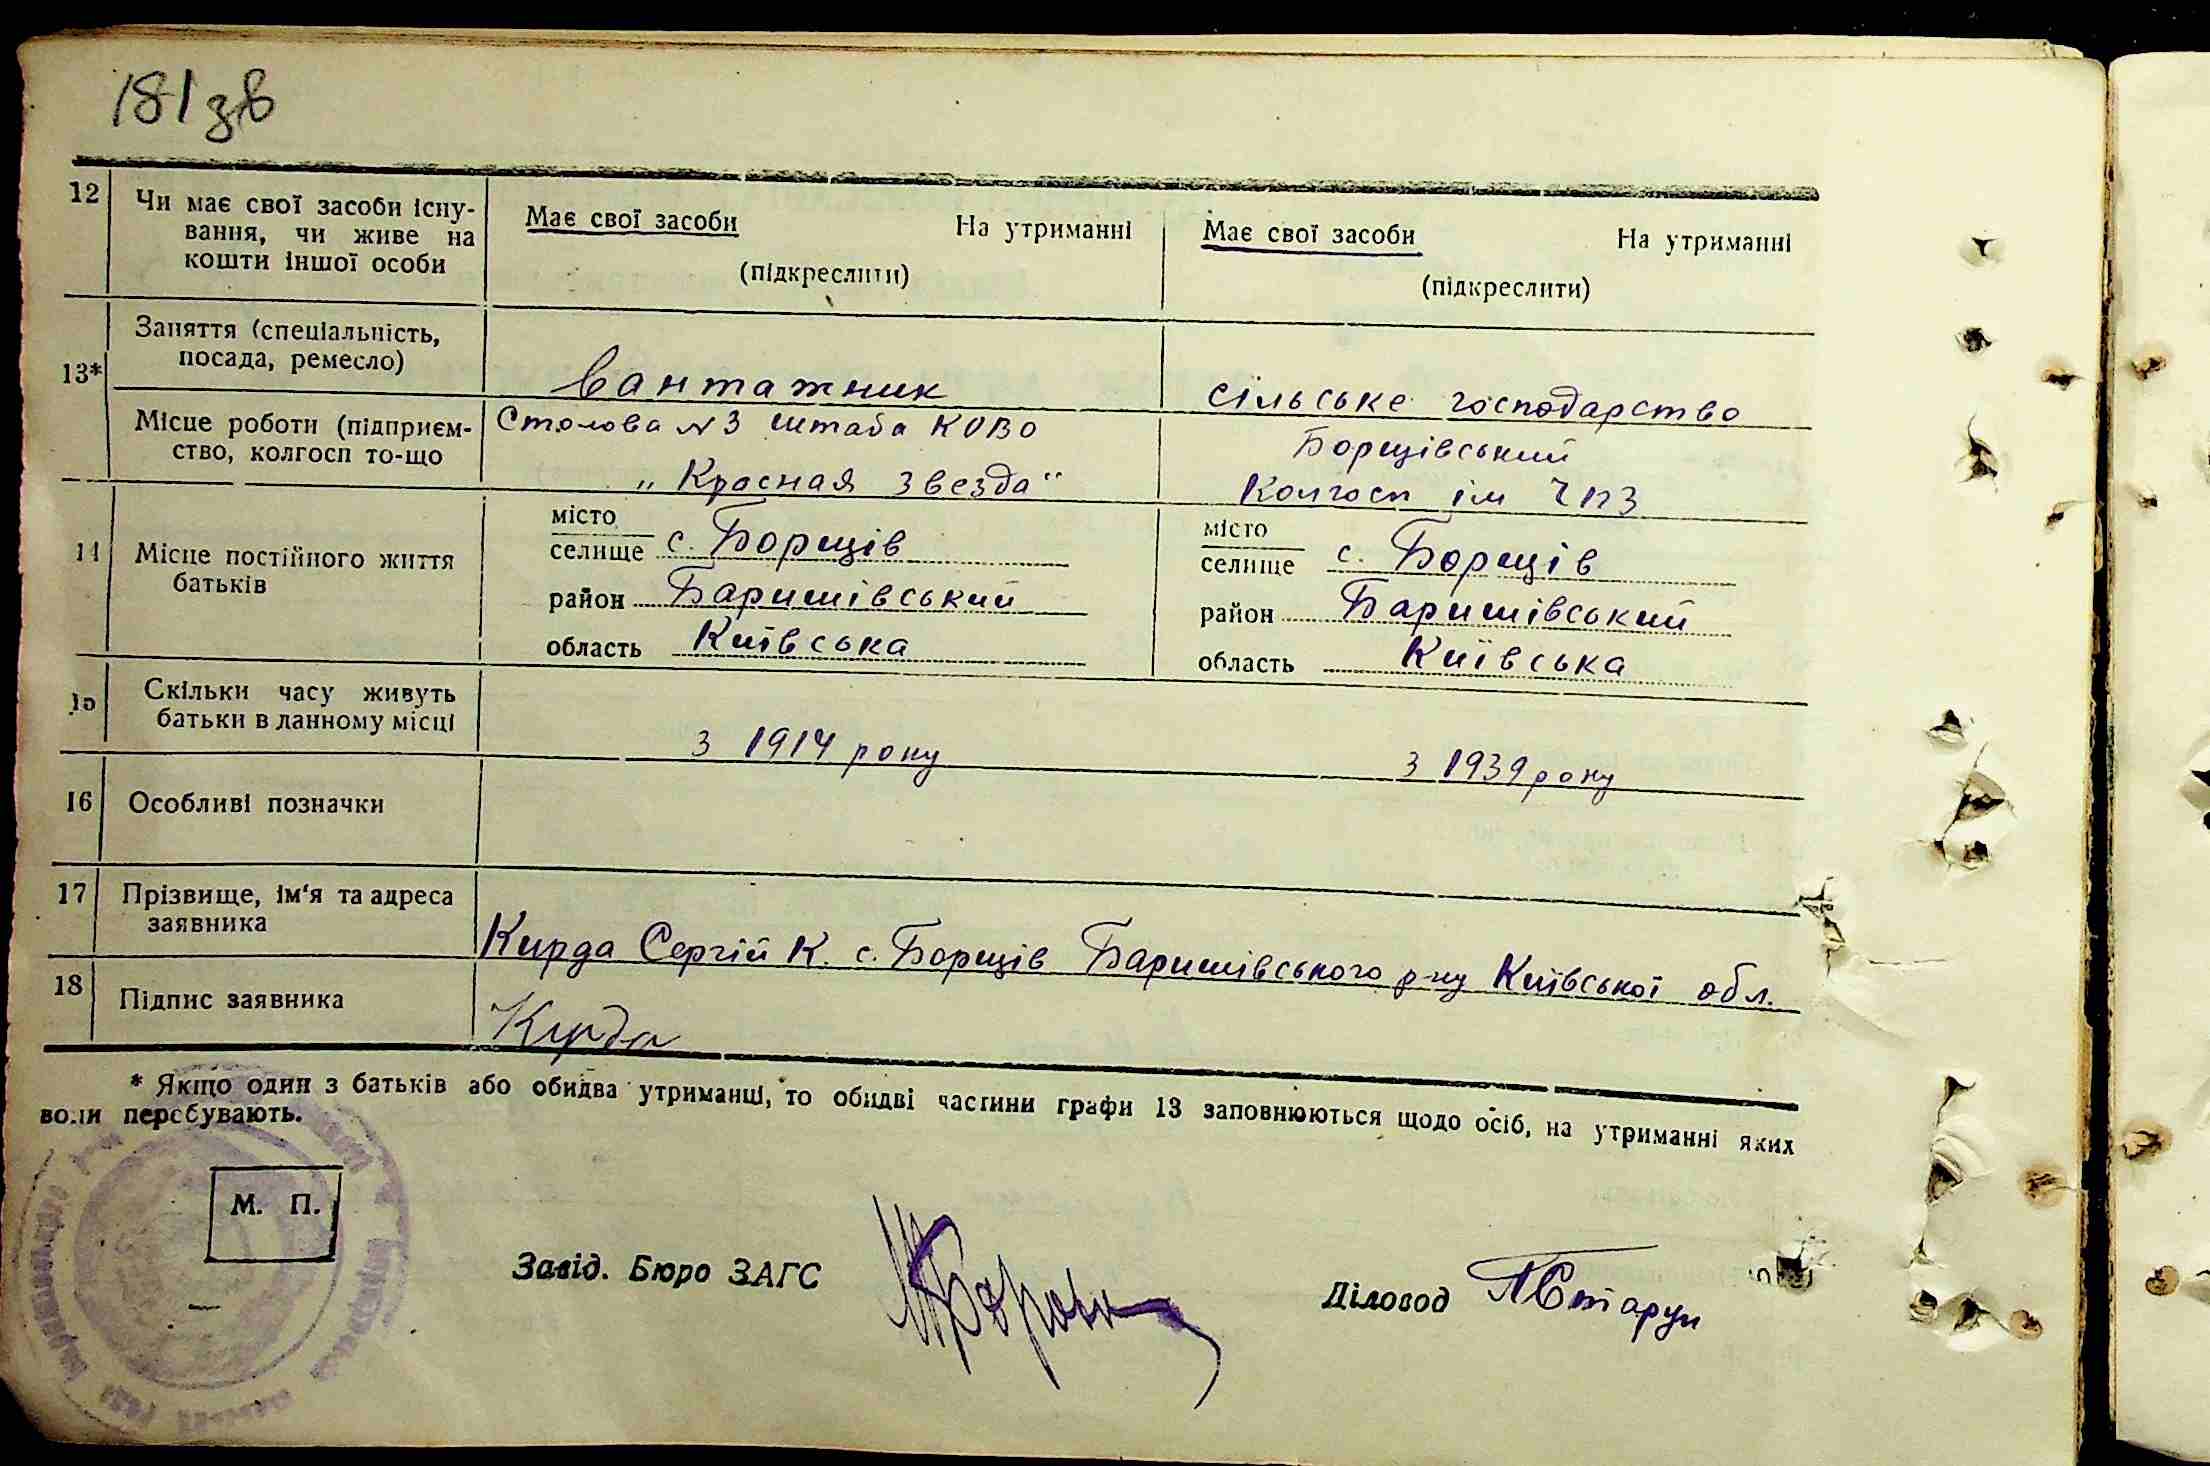 181зв
12 Чи має свої засоби існу-
вання, чи живе на
кошти іншої особи
Має свої засоби На утриманні
(підкреслити)
Має свої засоби На утриманні
(підкреслити)
13*
Заняття (спеціальність,
посада, ремесло)
Вантажник
сільське господарство
Місце роботи (підприєм-
ство, колгосп то-що
Столова №3 штаба КОВО
„Красная звезда“
Борщівський
Колгосп ім
14 Місце постійного життя
батьків
місто
селище с. Борщів
район Баришівський
область Київська
місто
селище с. Борщів
район Баришівський
область Київська
15 Скільки часу живуть
батьки в данному місці
з 1914 року
з 1939 року
16 Особливі позначки
17 Прізвище, ім'я та адреса
заявника
Кирда Сергій К. с. Борщів Баришівського р-ну Київської обл.
18 Підпис заявника
Кирда
* Якщо один з батьків або обидва утриманці, то обидві частини графи 13 заповнюються щодо осіб, на утриманні яких
вони перебувають.
М. П.
Завід. Бюро ЗАГС
Діловод